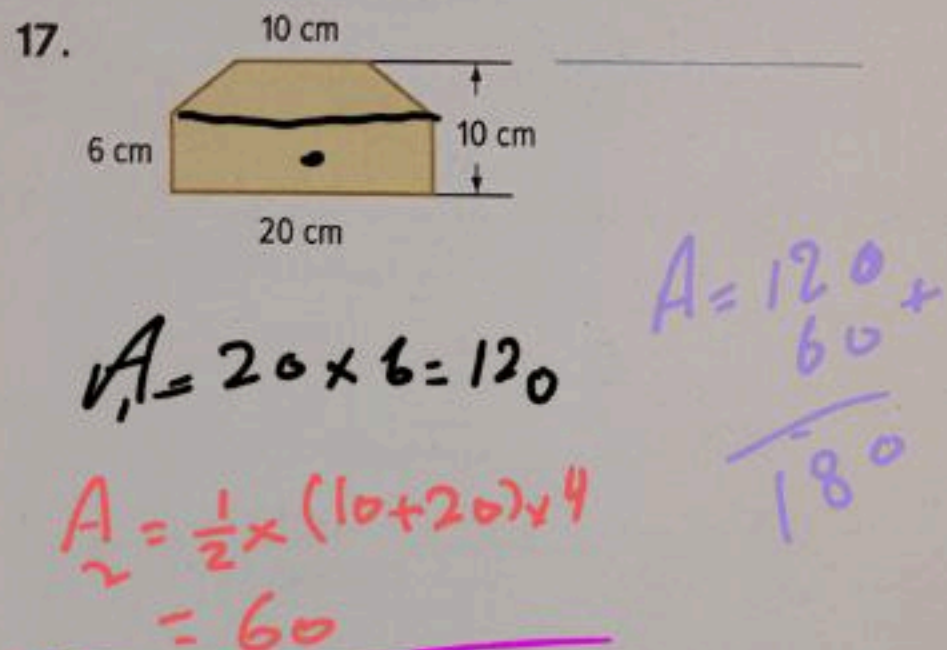 17.
10 cm
6 cm
10 cm
20 cm
A₁ = 20 × 6 = 120
A₂ = 1/2 × (10+20) × 4
= 60
A = 120 +
60
180